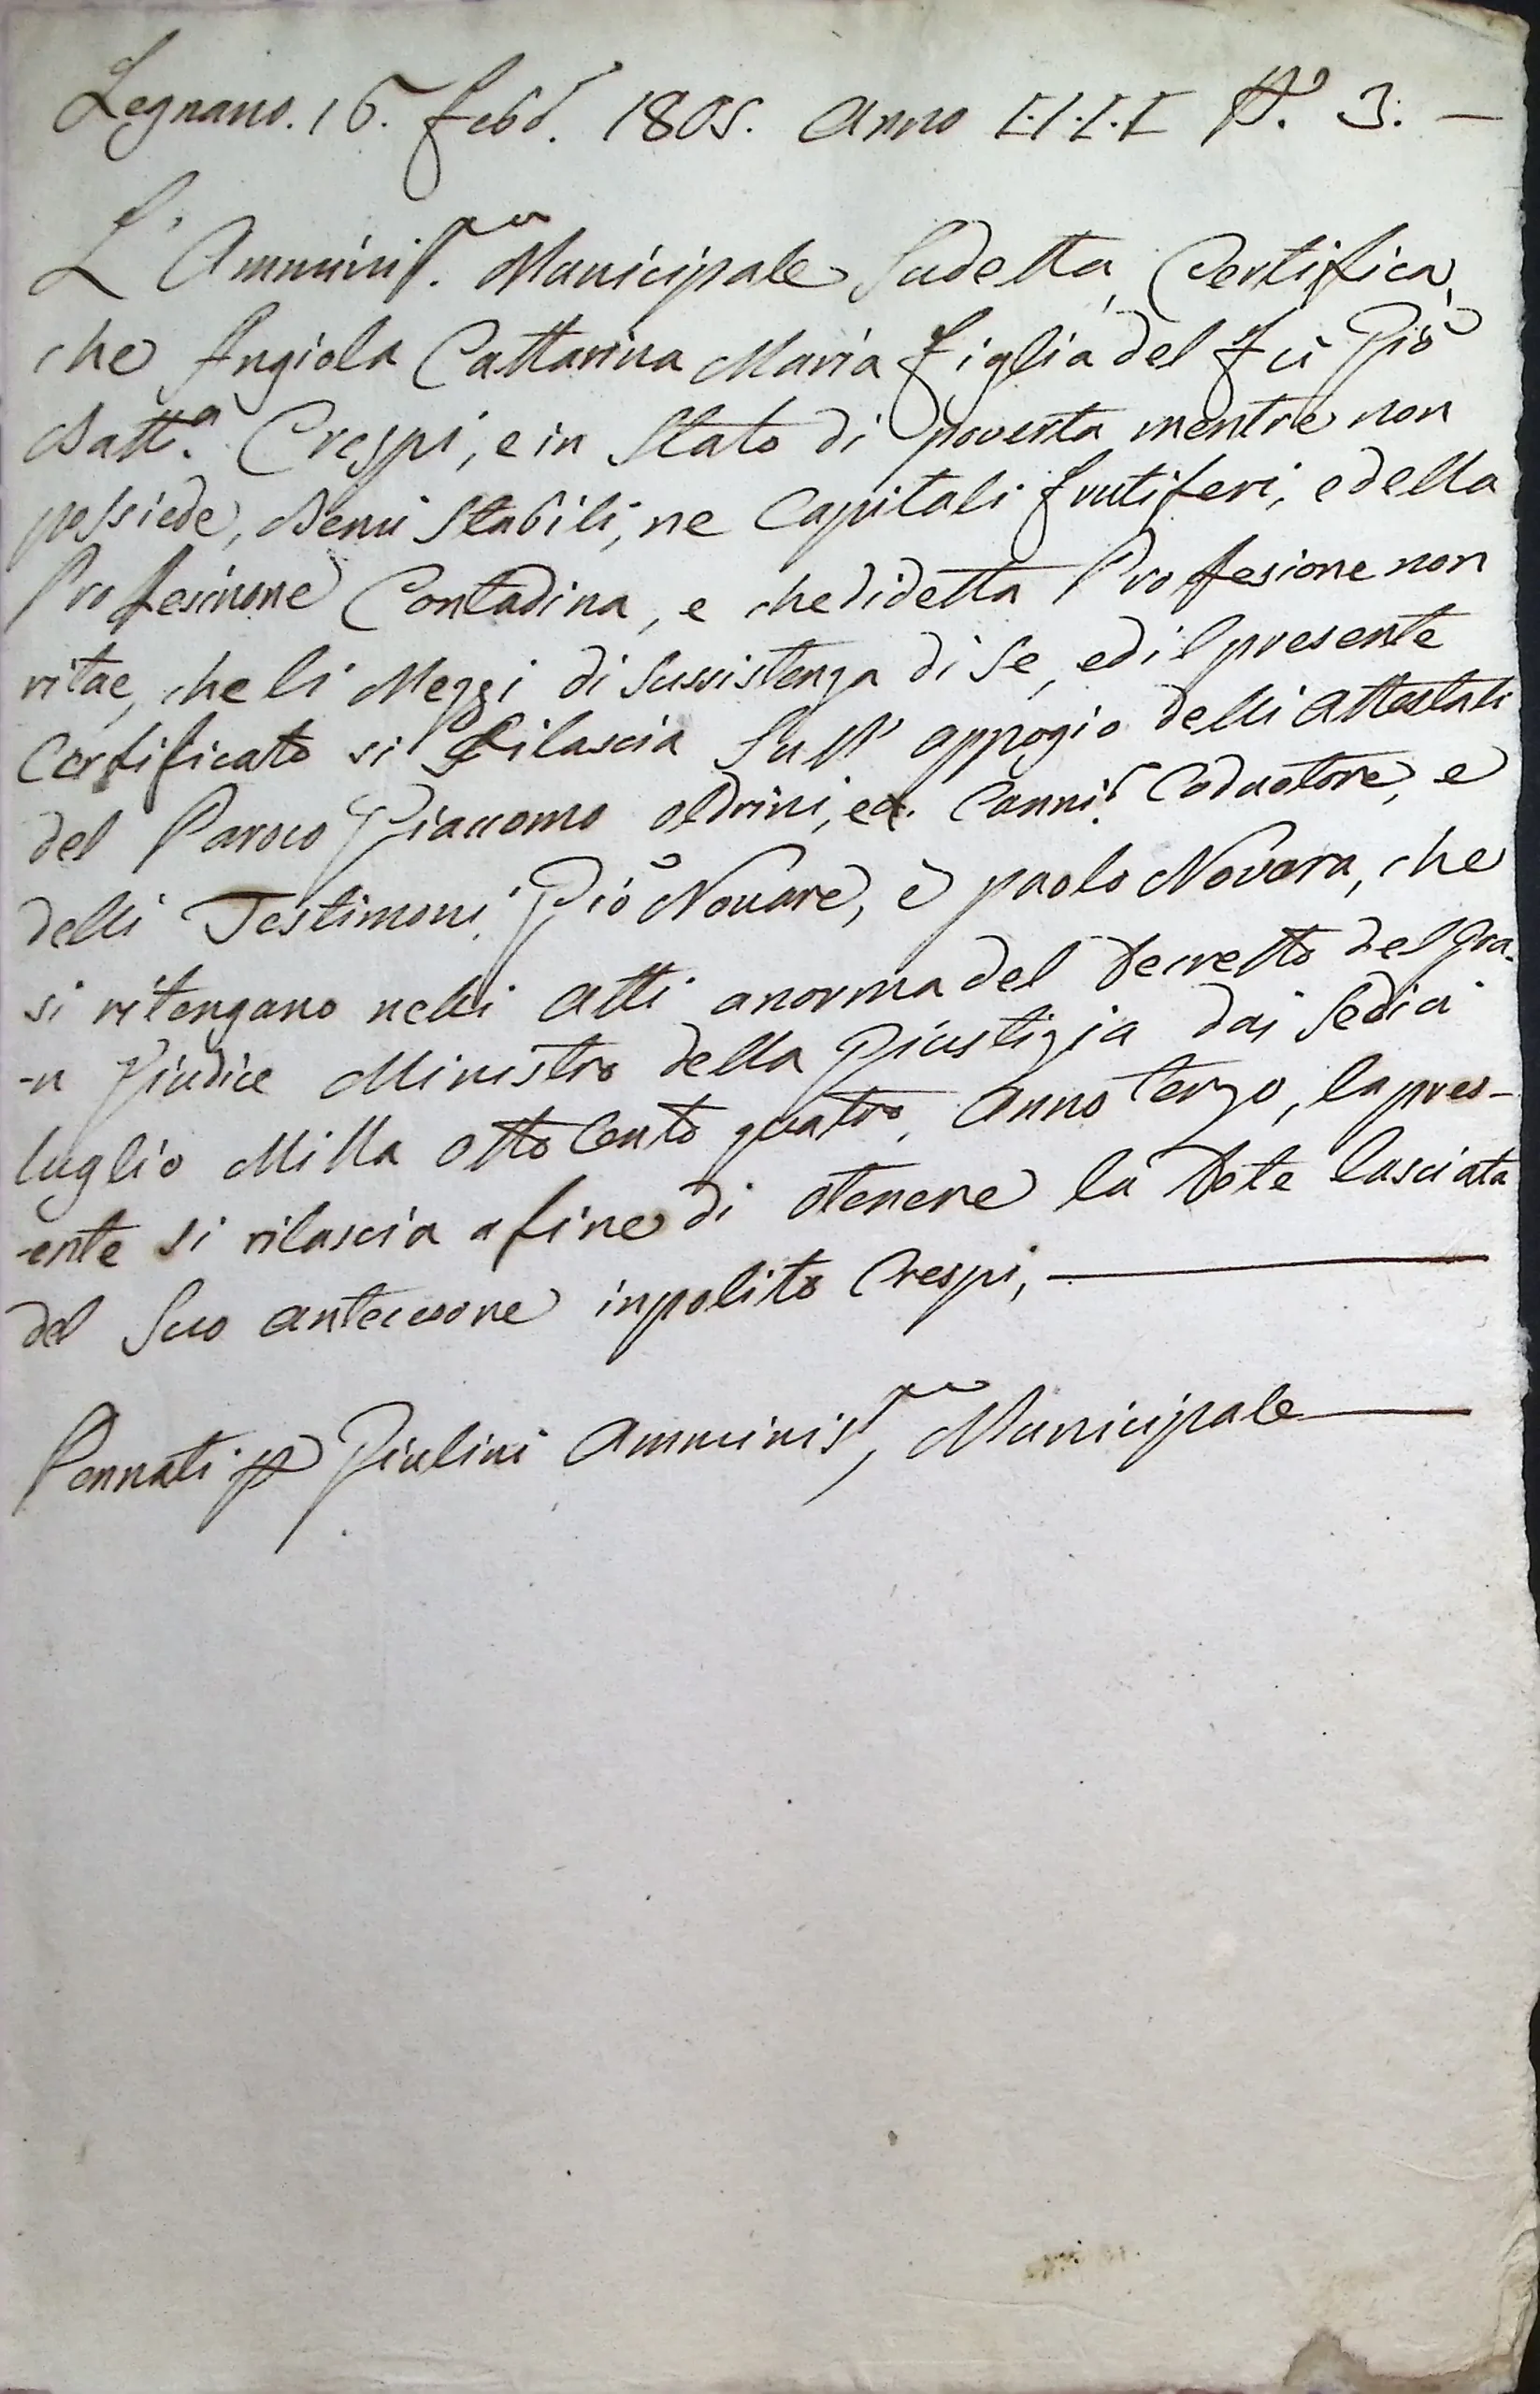 Legnano. 16. Febb.º 1805. Anno I.I.I.I Nº. 3. —
L'Amminis.ne Municipale Sudetta, Certifica,
che Angiola Cattarina Maria figlia del fù Giõ
Batt.a Crespi, e in Stato di poverta mentre non
possiede, Beni Stabili, ne Capitali frutiferi, e della
Profesinone Contadina, e che di detta Profesione non
ritae, che li Mezzi di Sussistenza di Se, ed il presente
Certificato si Rilascia Sull' appogio delli attestati
del Paroco Giacomo Oldrini, ed. Canni. Coduotore, e
delli Testimoni Giõ Novare, è paolo Novara, che
si ritengano nelli atti a norma del Decretto del Gra-
-n Giudice Ministro della Giustizia dai Sedici
luglio Milla otto Cento quatro, Anno terzo, la pres-
-ente si rilascia a fine di otenere la Dote lasciata
del Suo antecesore inpolito Crespi, —
Pennati p Giulini Amminis. Municipale —